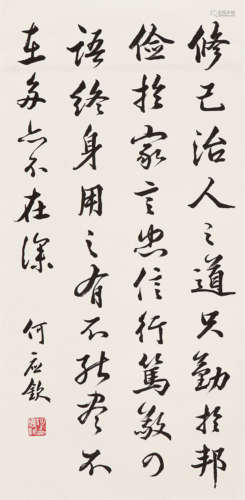 修己治人之道只勤於邦
儉於家言忠信行篤敬四
語終身用之有不能盡不
在多亦不在深
何應欽